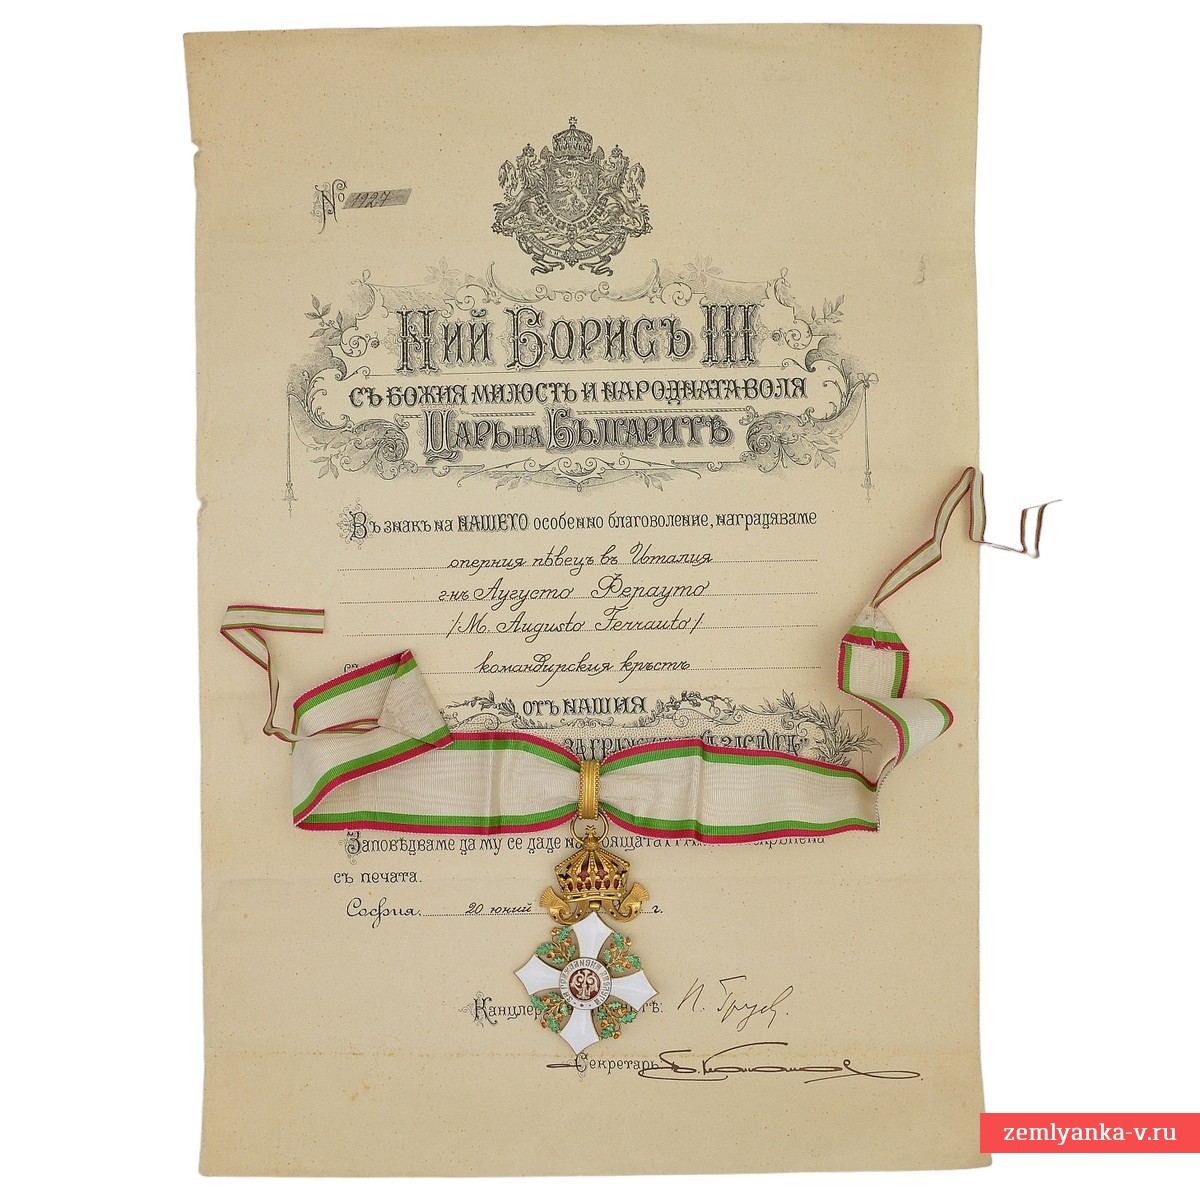 № 1927
Ний Борисъ III
съ Божия милость и народната воля
Царь на Българитѣ
Въ знакъ на НАШЕТО особенно благоволение, награждаваме
оперния пѣвецъ въ Италия
г-нъ Аугусто Ферауто
/M. Augusto Ferrauto/
съ командирския кръстъ
отъ нашия
Заповѣдваме да му се даде
съ печата.
София, 20 юний г.
ЗА ГРАЖДАНСКА ЗАСЛУГА
Канцлер
Секретарь:
zemlyanka-v.ru